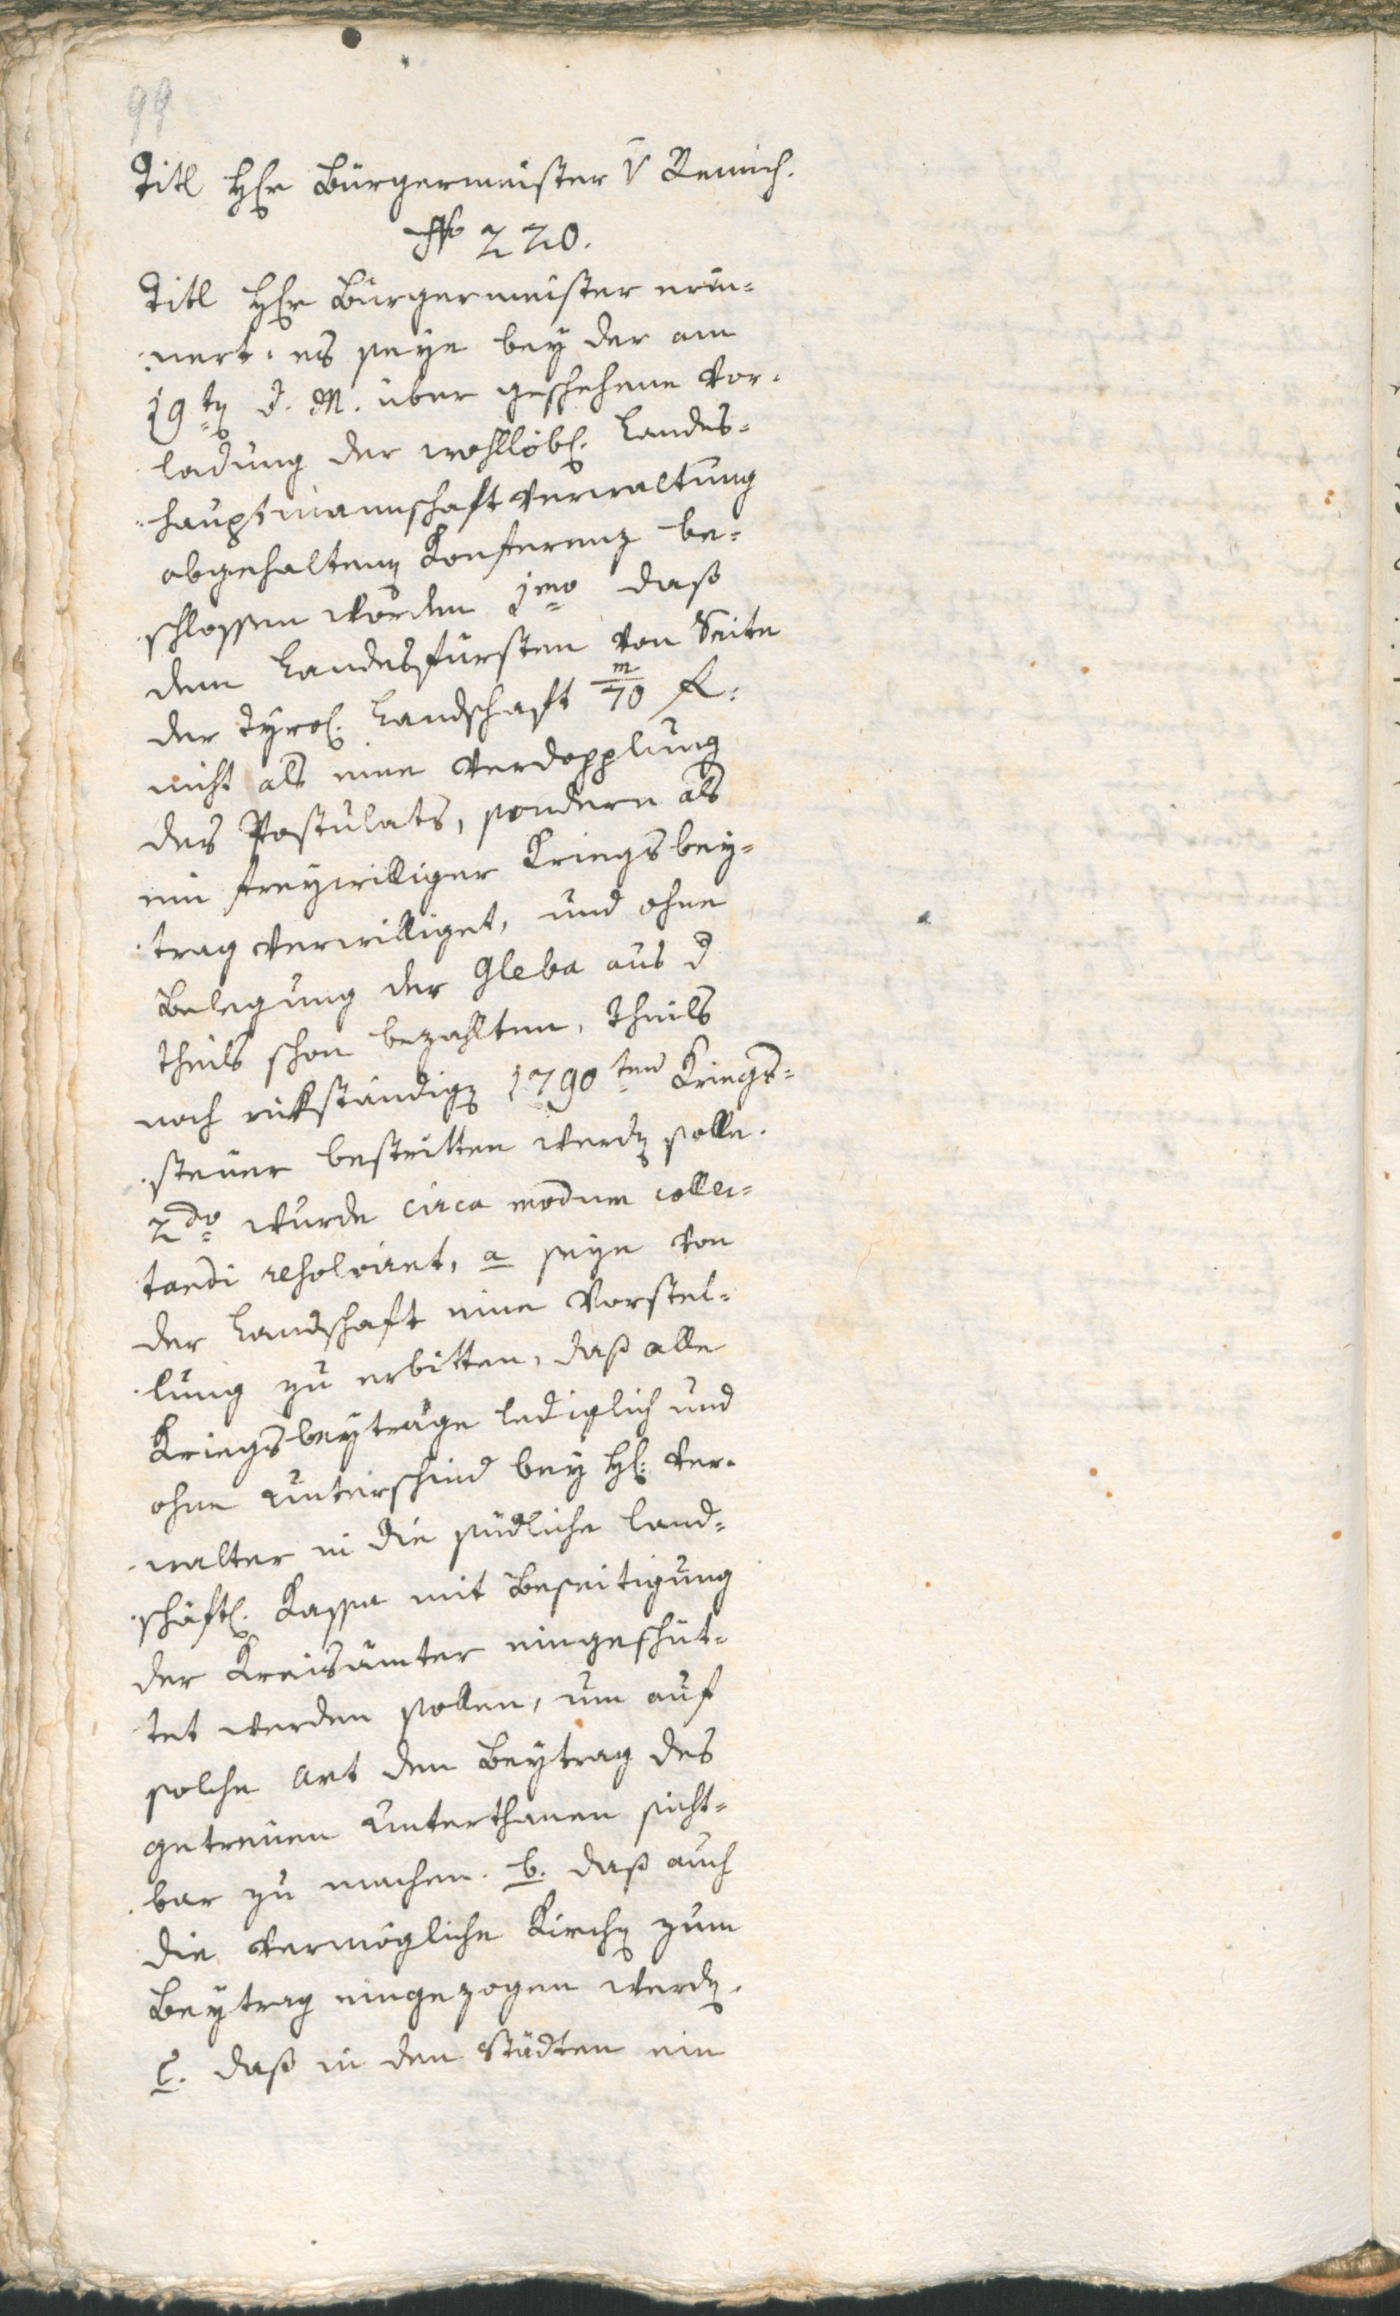 99
Titl Hr Bürgermeister v Remich.
No 220.
Titl Hr Bürgermeister erin-
nert: es seye bey der am
19ten d. M. über geschehene Vor-
ladung der wohllöbl. Landes-
hauptmannschaft Verwaltung
abgehaltenen Konferenz be-
schlossen worden 1mo daß
dem Landesfürsten von Seite
der Tyrol. Landschaft m/70 f.
nicht als eine Verdopplung
des Postulats, sondern als
ein freywilliger Kriegsbey-
trag verwilliget, und ohne
Belegung der Gleba aus d
theils schon bezahlten, theils
noch rükständigen 1790ten Kriegs-
steuer bestritten werden solle.
2do wurde circa modum collec-
tandi resolviret, a seye von
der Landschaft eine Vorstel-
lung zu erbitten, daß alle
Kriegsbeyträge lediglich und
ohne Unterschied bey H: Ver-
walter in die südliche land-
schäftl. Kasse mit Beseitigung
der Kreisämter eingeschüt-
tet werden sollen, um auf
solche Art den Beytrag des
getreuen Unterthanen sicht-
bar zu machen. b. daß auch
die vermögliche Kirchen zum
Beytrag eingezogen werden.
c. daß in den Städten ein